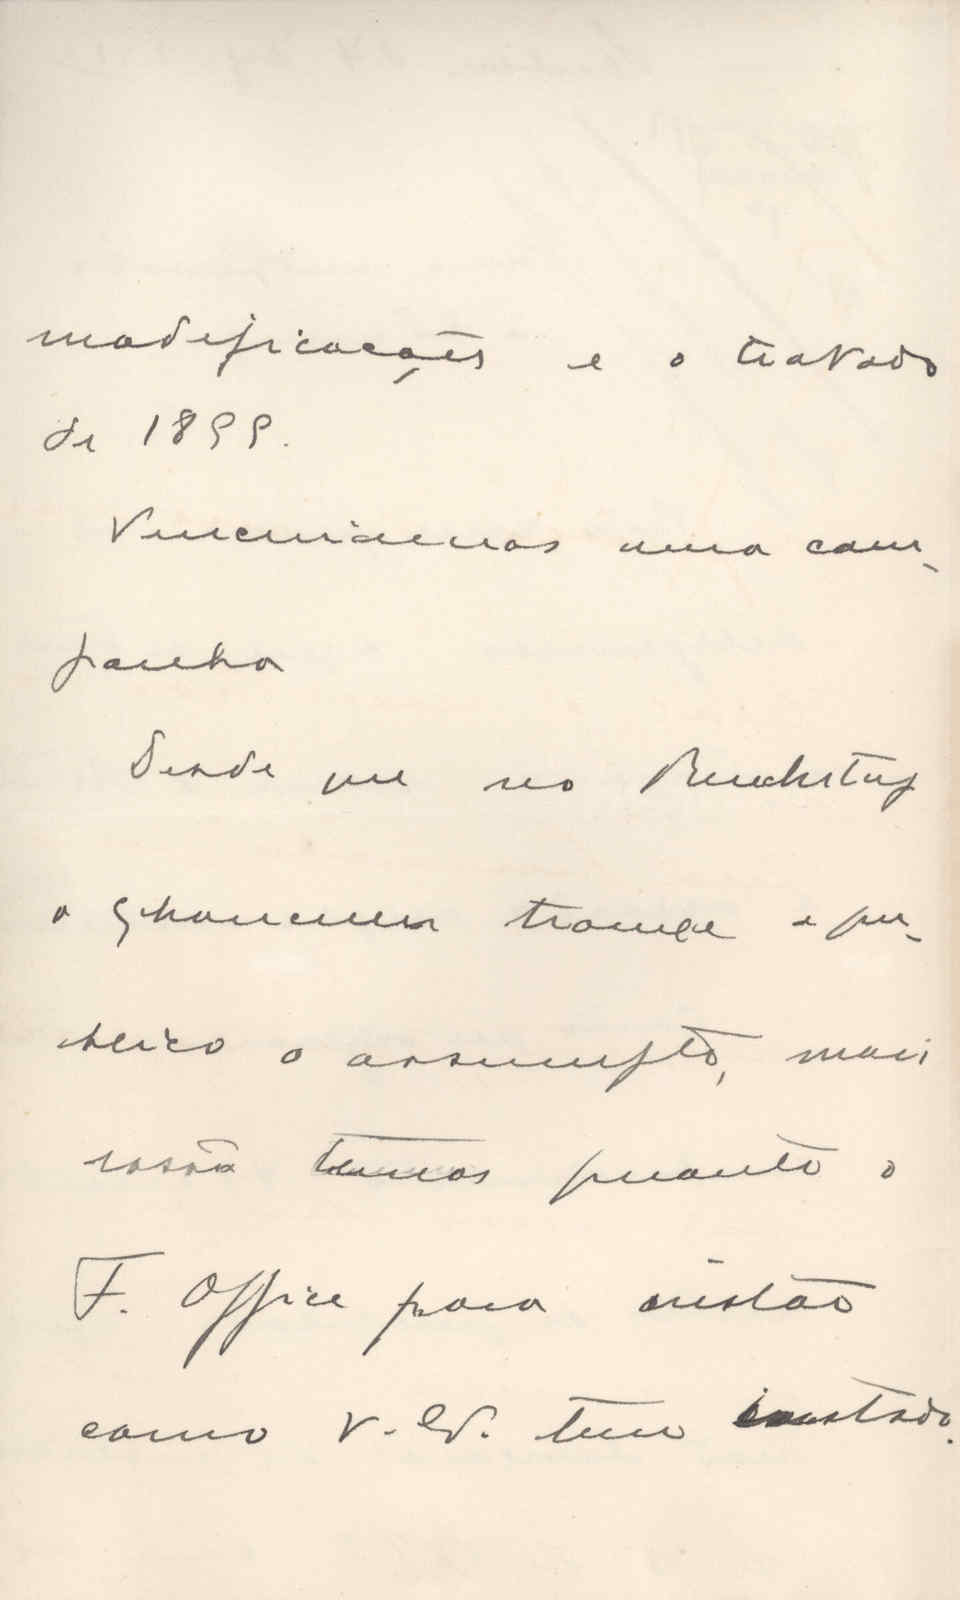 modificações e o tratado
de 1899.
Vencemos uma cam-
panha
Desde que no Reichstag
o Chanceller trouxe a pu-
blico o assumpto, mais
rasão temos quanto o
F. Office para
como V. Ex. tem instado.